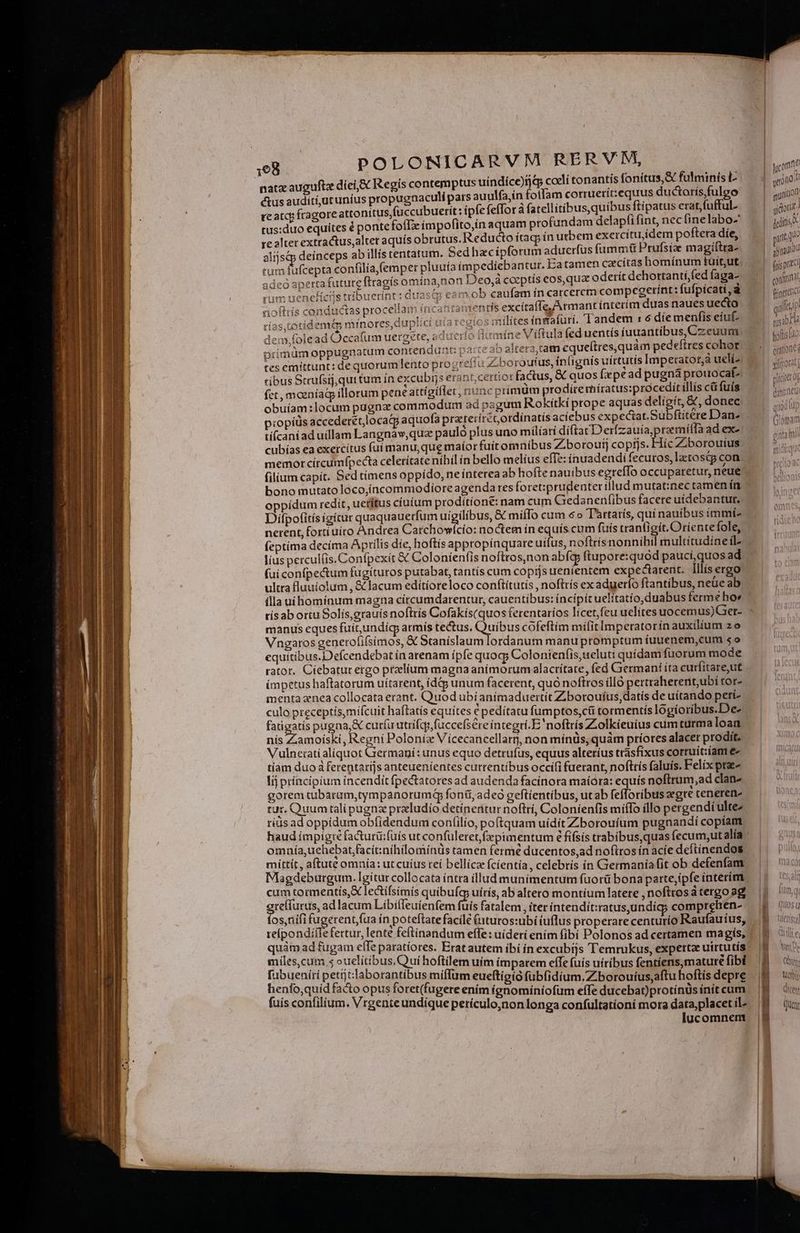 108 POLONICARVM RERVM,
natæ augustæ diei,& Regis contemptus uindice)ijsq; cœli tonantis sonitus,& fulminis i-
ctus auditi,ut unius propugnaculi pars aualsa,in fossam corruerit:equus ductoris,fulgo
re atq; fragore attonitus,succubuerit: ipse sessor à satellitibus,quibus stipatus erat,sufful-
tus:duo equites è ponte fossæ imposito,in aquam profundam delapsi sint, nec sine labo-
re alter extractus,alter aquis obrutus. Reducto itaq; in urbem exercitu,idem postera die,
alijsq; deinceps ab illis tentatum. Sed hæc ipsorum aduersus summũ Prussiæ magistra-
tum suscepta consilia,semper pluuia impediebantur. Ea tamen cæcitas hominum fuit,ut
adeò aperta future stragis omina,non Deo,à cœptis eos,quæ oderit dehortanti,sed saga-
rum ueneficijs tribuerint: duasq; eam ob causam in carcerem compegerint: suspicati, à
nostris conductas procellam incantamentis excitasse. Armant interim duas naues uecto
rias,totidemq; minores,duplici uia regios milites inuasuri. Tandem 16 die mensis eius-
dem,sole ad Occasum uergete, aduerso flumine Vistula sed uentis iuuantibus,Czeuum
primùm oppugnatum contendunt: parte ab altera,tam equestres,quàm pedestres cohor
tes emittunt: de quorum lento progressu Zborouius, insignis uirtutis Imperator,à ueli-
tibus Strusij,qui tum in excubijs erant,certior factus, & quos sæpe ad pugnã prouocas-
set, mœniaq; illorum penè attigisset, nunc primùm prodire miratus:procedit illis cũ suis
obuiam:locum pugnæ commodum ad pagum Rokitki prope aquas deligit, &, donec
propiùs accederét,locaq; aquosa præterirét,ordinatis aciebus expectat.Substitére Dan-
tiscani ad uillam Langnaw,quæ paulò plus uno miliari distat Dersзauia,præmissa ad ex-
cubias ea exercitus sui manu,que maior fuit omnibus Zborouij copijs. Hic Zborouius
memor circumspecta celeritate nihil in bello melius esse: inuadendi securos,lætosq; con
silium capit. Sed timens oppido, ne interea ab hoste nauibus egresso occuparetur, néue
bono mutato loco,incommodiore agenda res foret:prudenter illud mutat:nec tamen in
oppidum redit, ueritus ciuium proditionē: nam cum Gedanensibus facere uidebantur.
Dispositis igitur quaquauersum uigilibus, & misso cum 60 Tartaris, qui nauibus immi-
nerent, forti uiro Andrea Carchowscio: noctem in equis cum suis transigit.Oriente sole,
septima decima Aprilis die, hostis appropinquare uisus, nostris nonnihil multitudine il-
lius perculsis.Conspexit & Coloniensis nostros,non absq; stupore:quòd pauci,quos ad
sui conspectum fugituros putabat, tantis cum copijs uenientem expectarent. Illis ergo
ultra fluuiolum, & lacum editiore loco constitutis, nostris ex aduerso stantibus, neue ab
illa ui hominum magna circumdarentur, cauentibus: incipit uelitatio,duabus fermè ho-
ris ab ortu Solis,grauis nostris Cosakis(quos ferentarios licet,seu uelites uocemus)Ger-
manus eques fuit,undiq; armis tectus. Quibus cõfestim misit Imperator in auxilium 20
Vngaros generosissimos, & Stanislaum Iordanum manu promptum iuuenem,cum 50
equitibus.Descendebat in arenam ipse quoq; Coloniensis,ueluti quidam suorum mode
rator. Ciebatur ergo prælium magna animorum alacritate, sed Germani ita cursitare,ut
impetus hastatorum uitarent, idq; unum facerent, quò nostros illò pertraherent,ubi tor-
menta ænea collocata erant. Quod ubi animaduertit Zborouius,datis de uitando peri-
culo preceptis,miscuit hastatis equites è peditatu sumptos,cũ tormentis lõgioribus.De-
fatigatis pugna,& cursu utrisq;,successére integri.E' nostris Zolkieuius cum turma Ioan
nis Zamoiski, Regni Poloniæ Vicecancellarij, non minùs, quàm priores alacer prodit.
Vulnerati aliquot Germani: unus equo detrusus, equus alterius trãsfixus corruit:iam e-
tiam duo à ferentarijs anteuenientes currentibus occisi fuerant, nostris saluis. Felix præ-
lij principium incendit spectatores ad audenda facinora maiora: equis nostrum,ad clan-
gorem tubarum,tympanorumq; sonũ, adeò gestientibus, ut ab sessoribus ægrè teneren-
tur. Quum tali pugnæ præludio detinentur nostri, Coloniensis misso illo pergendi ulte-
riùs ad oppidum obsidendum consilio, postquam uidit Zborouium pugnandi copiam
haud impigrè facturũ:suis ut consuleret,sæpimentum è fissis trabibus,quas secum,ut alia
omnia,uehebat,facit:nihilominùs tamen fermè ducentos,ad nostros in acie destinendos
mittit, astute omnia: ut cuius rei bellicæ scientia, celebris in Germania sit ob defensam
Magdeburgum. Igitur collocata intra illud munimentum suorũ bona parte,ipse interim
cum tormentis,& lectissimis quibusq; uiris, ab altero montium latere , nostros à tergo ag
gressurus, ad lacum Libissеuiensem suis fatalem , iter intendit:ratus,undiq; comprehen-
sos,nisi fugerent,sua in potestate facilè futuros:ubi iussus properare centurio Raufauius,
respondisse fertur,lente festinandum esse: uideri enim sibi Polonos ad certamen magis,
quàm ad fugam esse paratiores. Erat autem ibi in excubijs Temrukus, expertæ uirtutis
miles,cum 50 uelitibus.Qui hostilem uim imparem esse suis uiribus sentiens,maturè sibi
subueniri petijt:laborantibus missum euestigiò subsidium. Zborouius,astu hostis depre
henso,quid facto opus foret(fugere enim ignominiosum esse ducebat)protinùs init cum
suis consilium. Vrgente undique periculo,non longa consultationi mora data,placet il-
luc omnem